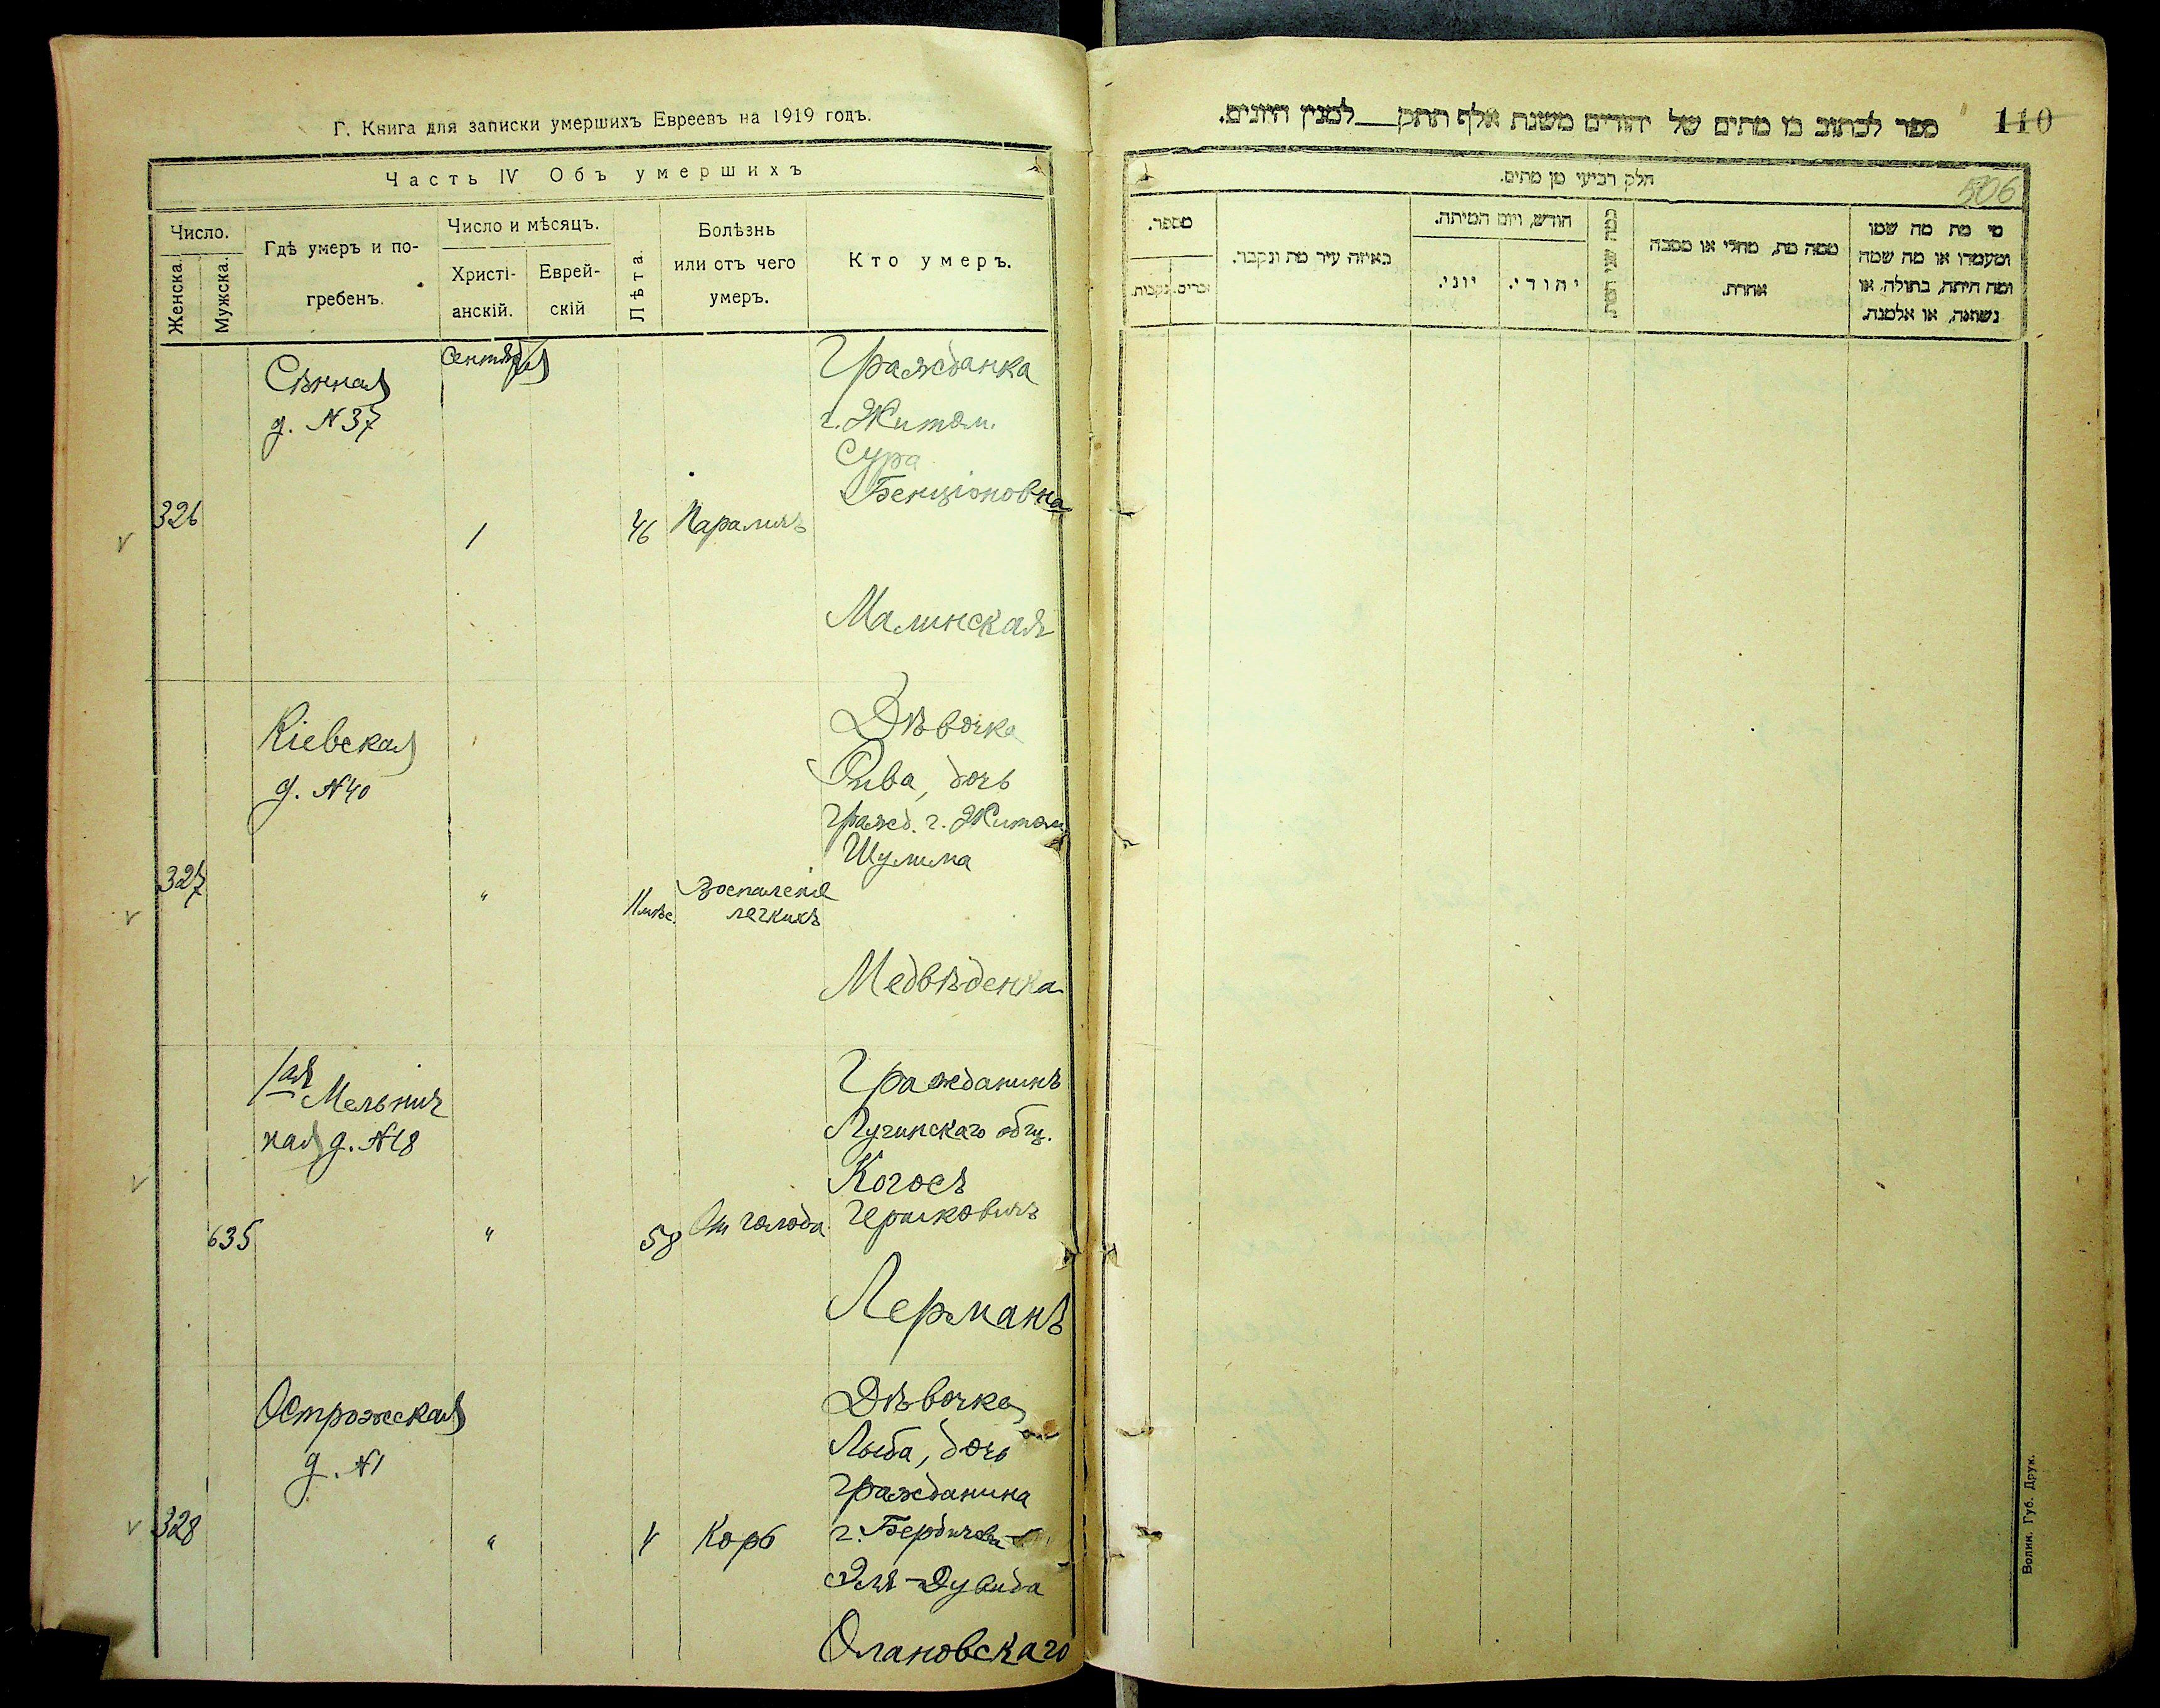 Г. Книга для записки умершихъ Евреевъ на 1919 годъ.
Часть IV Объ умершихъ
Число.
Женска.
Мужска.
Гдѣ умеръ и по-
гребенъ.
Число и мѣсяцъ.
Христі-
анскій.
Еврей-
скій
Лѣта.
Болѣзнь
или отъ чего
умеръ.
Кто умеръ.
Сѣнная
д. №37
Сентября
326
1
46
Параличъ
Гражданка
г. Житом.
Сура
Бенціоновна
Малинская
Кіевская
д. №40
327
"
Воспаленіе
легкихъ
Дѣвочка
Рива, дочь
гражд. г. Житом
Шулима
Медвѣденка
1ая Мельнич
ная д. №18
635
"
58
От голода
Гражданинъ
Лугинскаго общ.
Когосъ
Гершковичъ
Лерманъ
Острожская
д. №1
328
"
Корь
Дѣвочка
Лыба, дочь
гражданина
г. Бердичева
Эля-Дувида
Олановскаго
110
ספר לכתוב בו מתים של יהודים משנת אלף תתק__למנין היונים.
506
חלק רביעי מן מתים.
מספר.
נקבות.
זכרים.
באיזה עיר מת ונקבר.
חודש, ויום המיתה.
יוני.
יהודי.
כמה שני המת.
ממה מת, מחלי או מסבה
אחרת.
מי מת מה שמו
ומעמדו או מה שמה
ומה היתה, בתולה, או
נשואה, או אלמנה.
Волин. Губ. Друк.